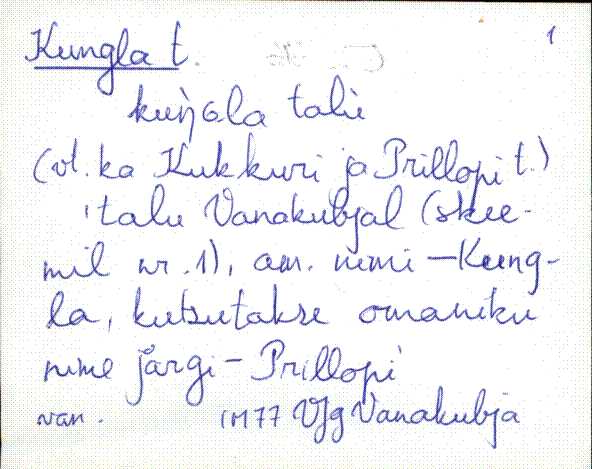 Kungla t. 1
kuŋGla talu
(vt. ka Kukkuri ja Prillopi t.)
talu Vanakubjal (skee-
mil nr. 1), am. nimi – Kung-
la, kutsutakse omaniku
nime järgi – Prillopi
van. 1977 VJg Vanakubja